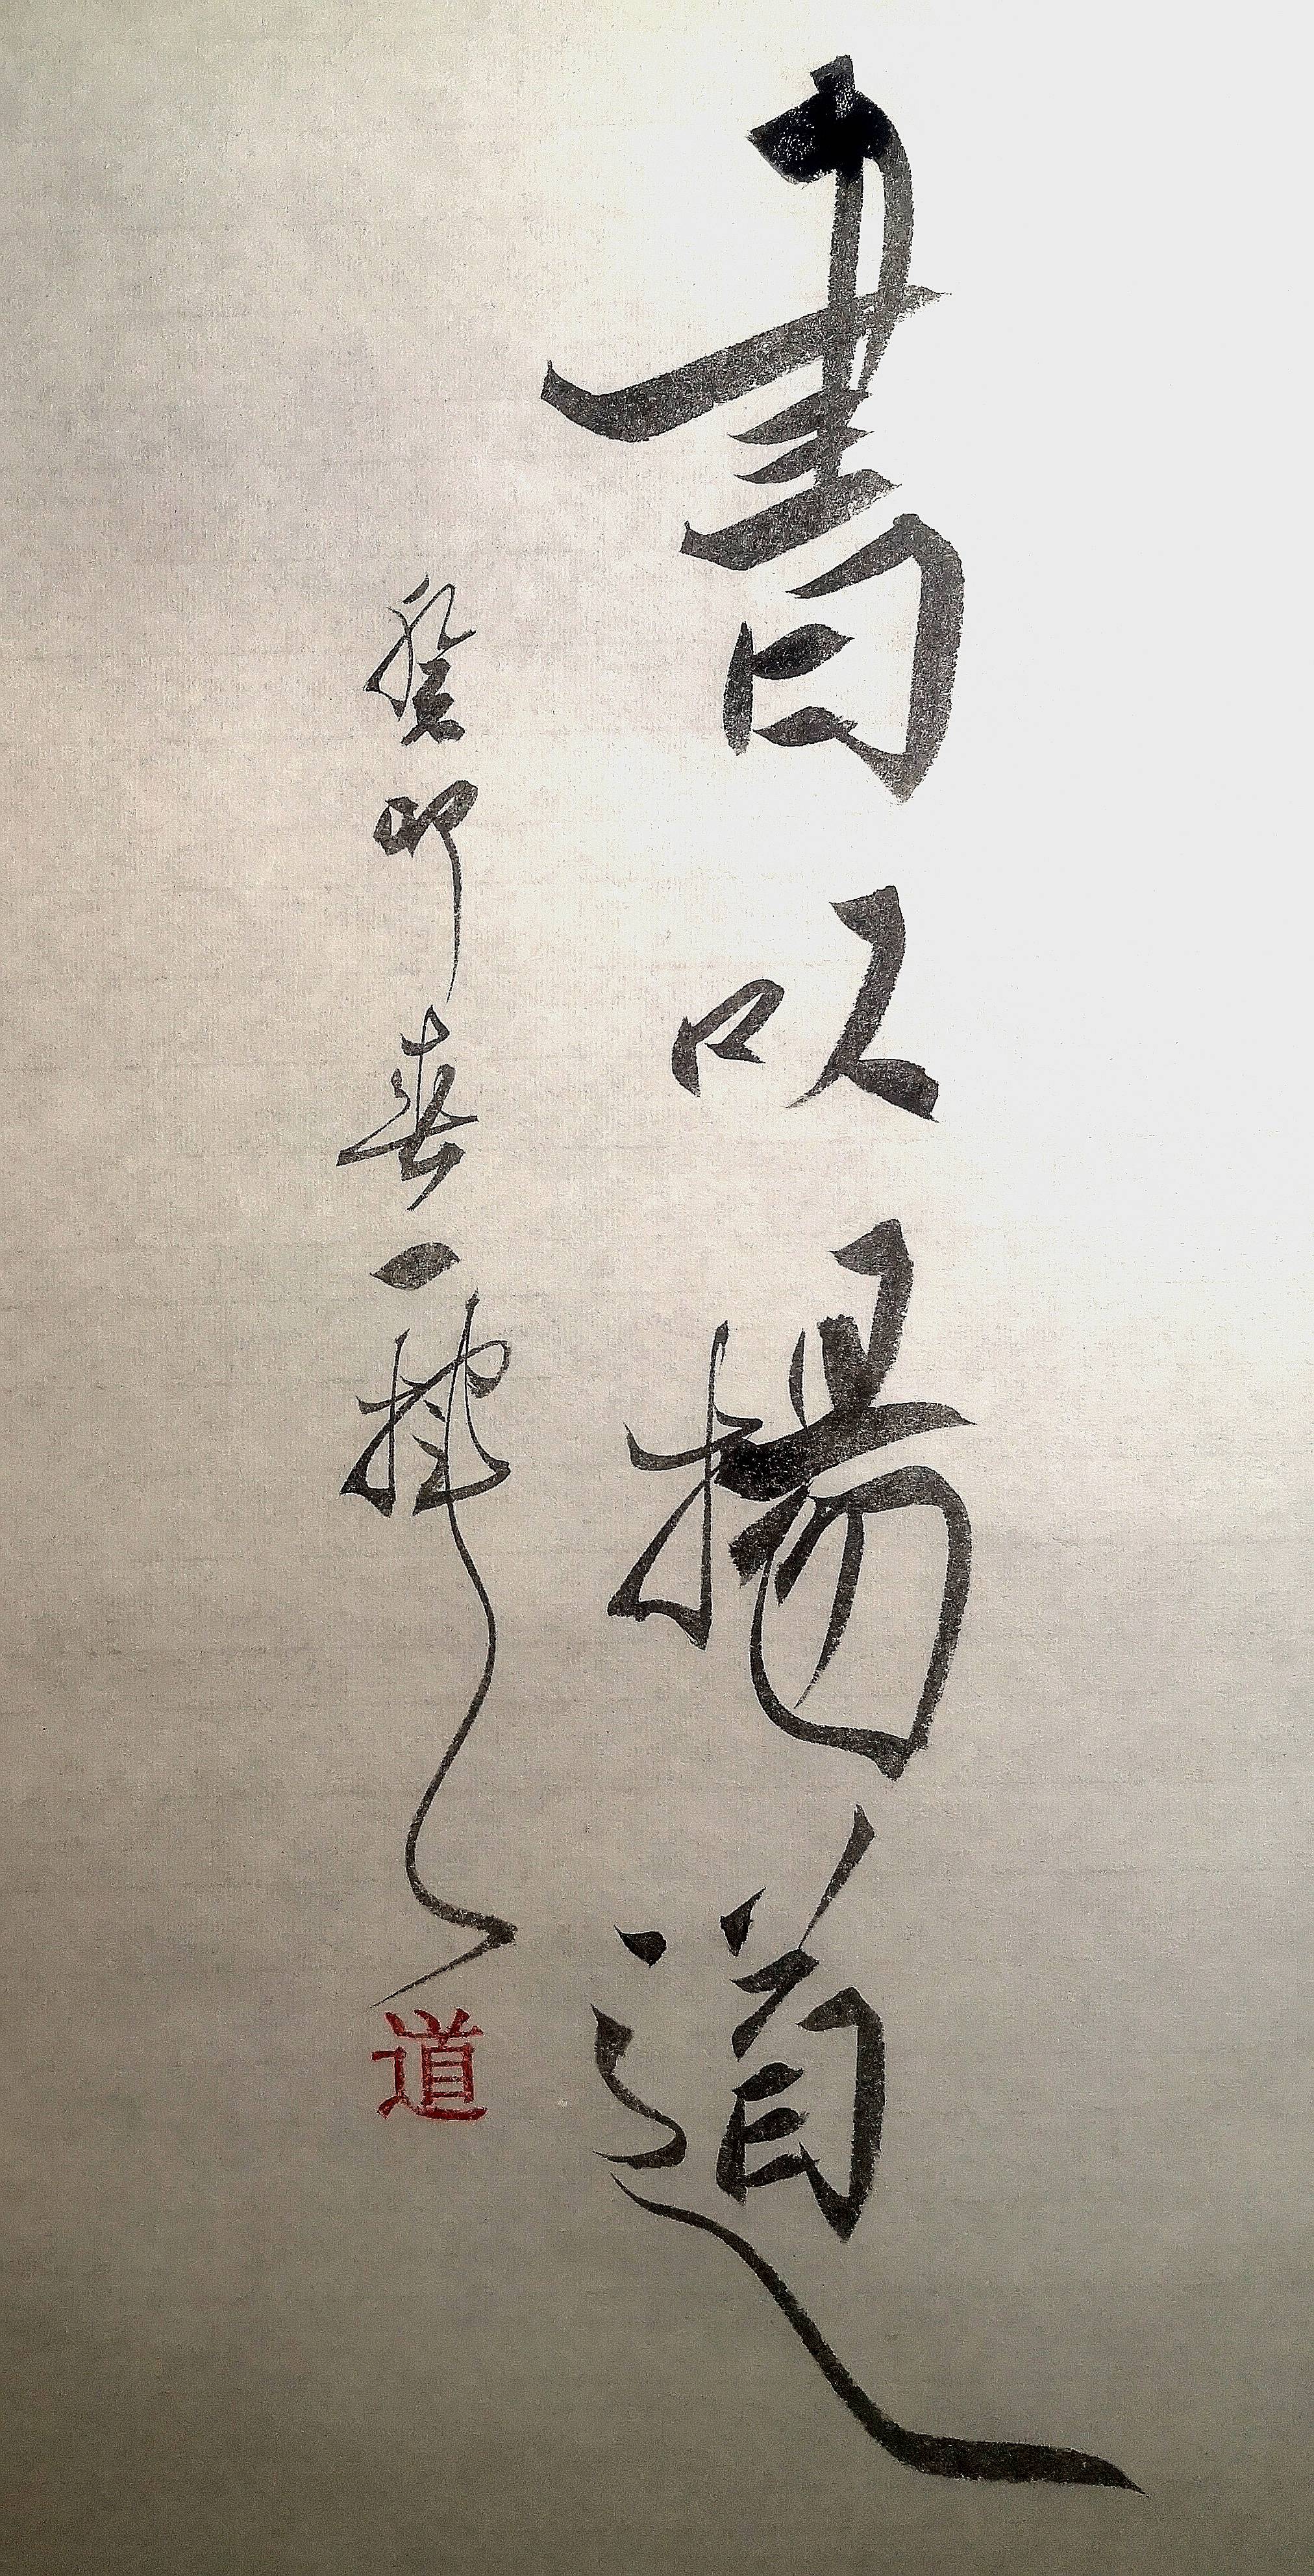 書以揚道
癸卯春一
道